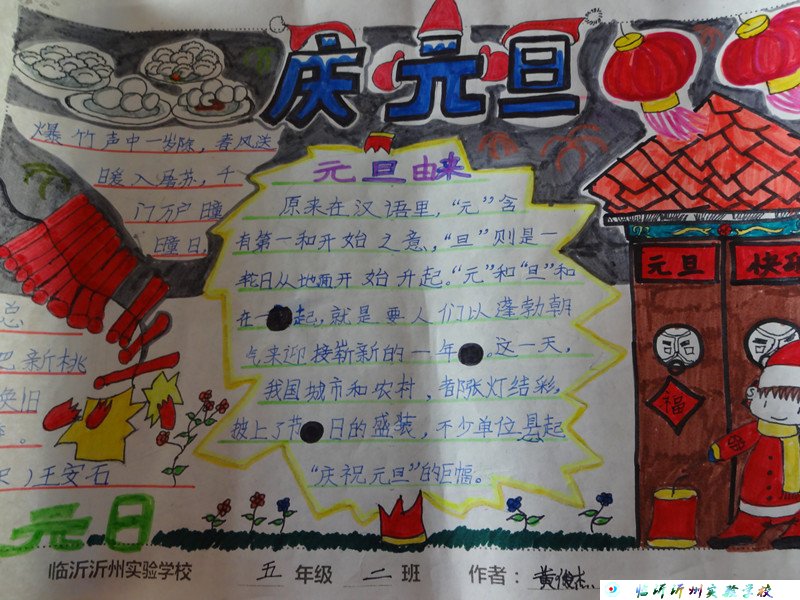 庆元旦
爆竹声中一岁除，春风送
暖入屠苏，千
门万户曈
曈日，
总
把新桃
换旧
）王安石
元日
元旦由来
原来在汉语里，“元”含
有第一和开始之意，“旦”则是一
轮日从地面开始升起。“元”和“旦”和
在一起，就是要人们以蓬勃朝
气来迎接崭新的一年。这一天，
我国城市和农村，都张灯结彩，
披上了节日的盛装，不少单位悬起
“庆祝元旦”的巨幅。
元旦
快
福
临沂沂州实验学校 五年级 二班 作者：黄俊杰
临沂沂州实验学校